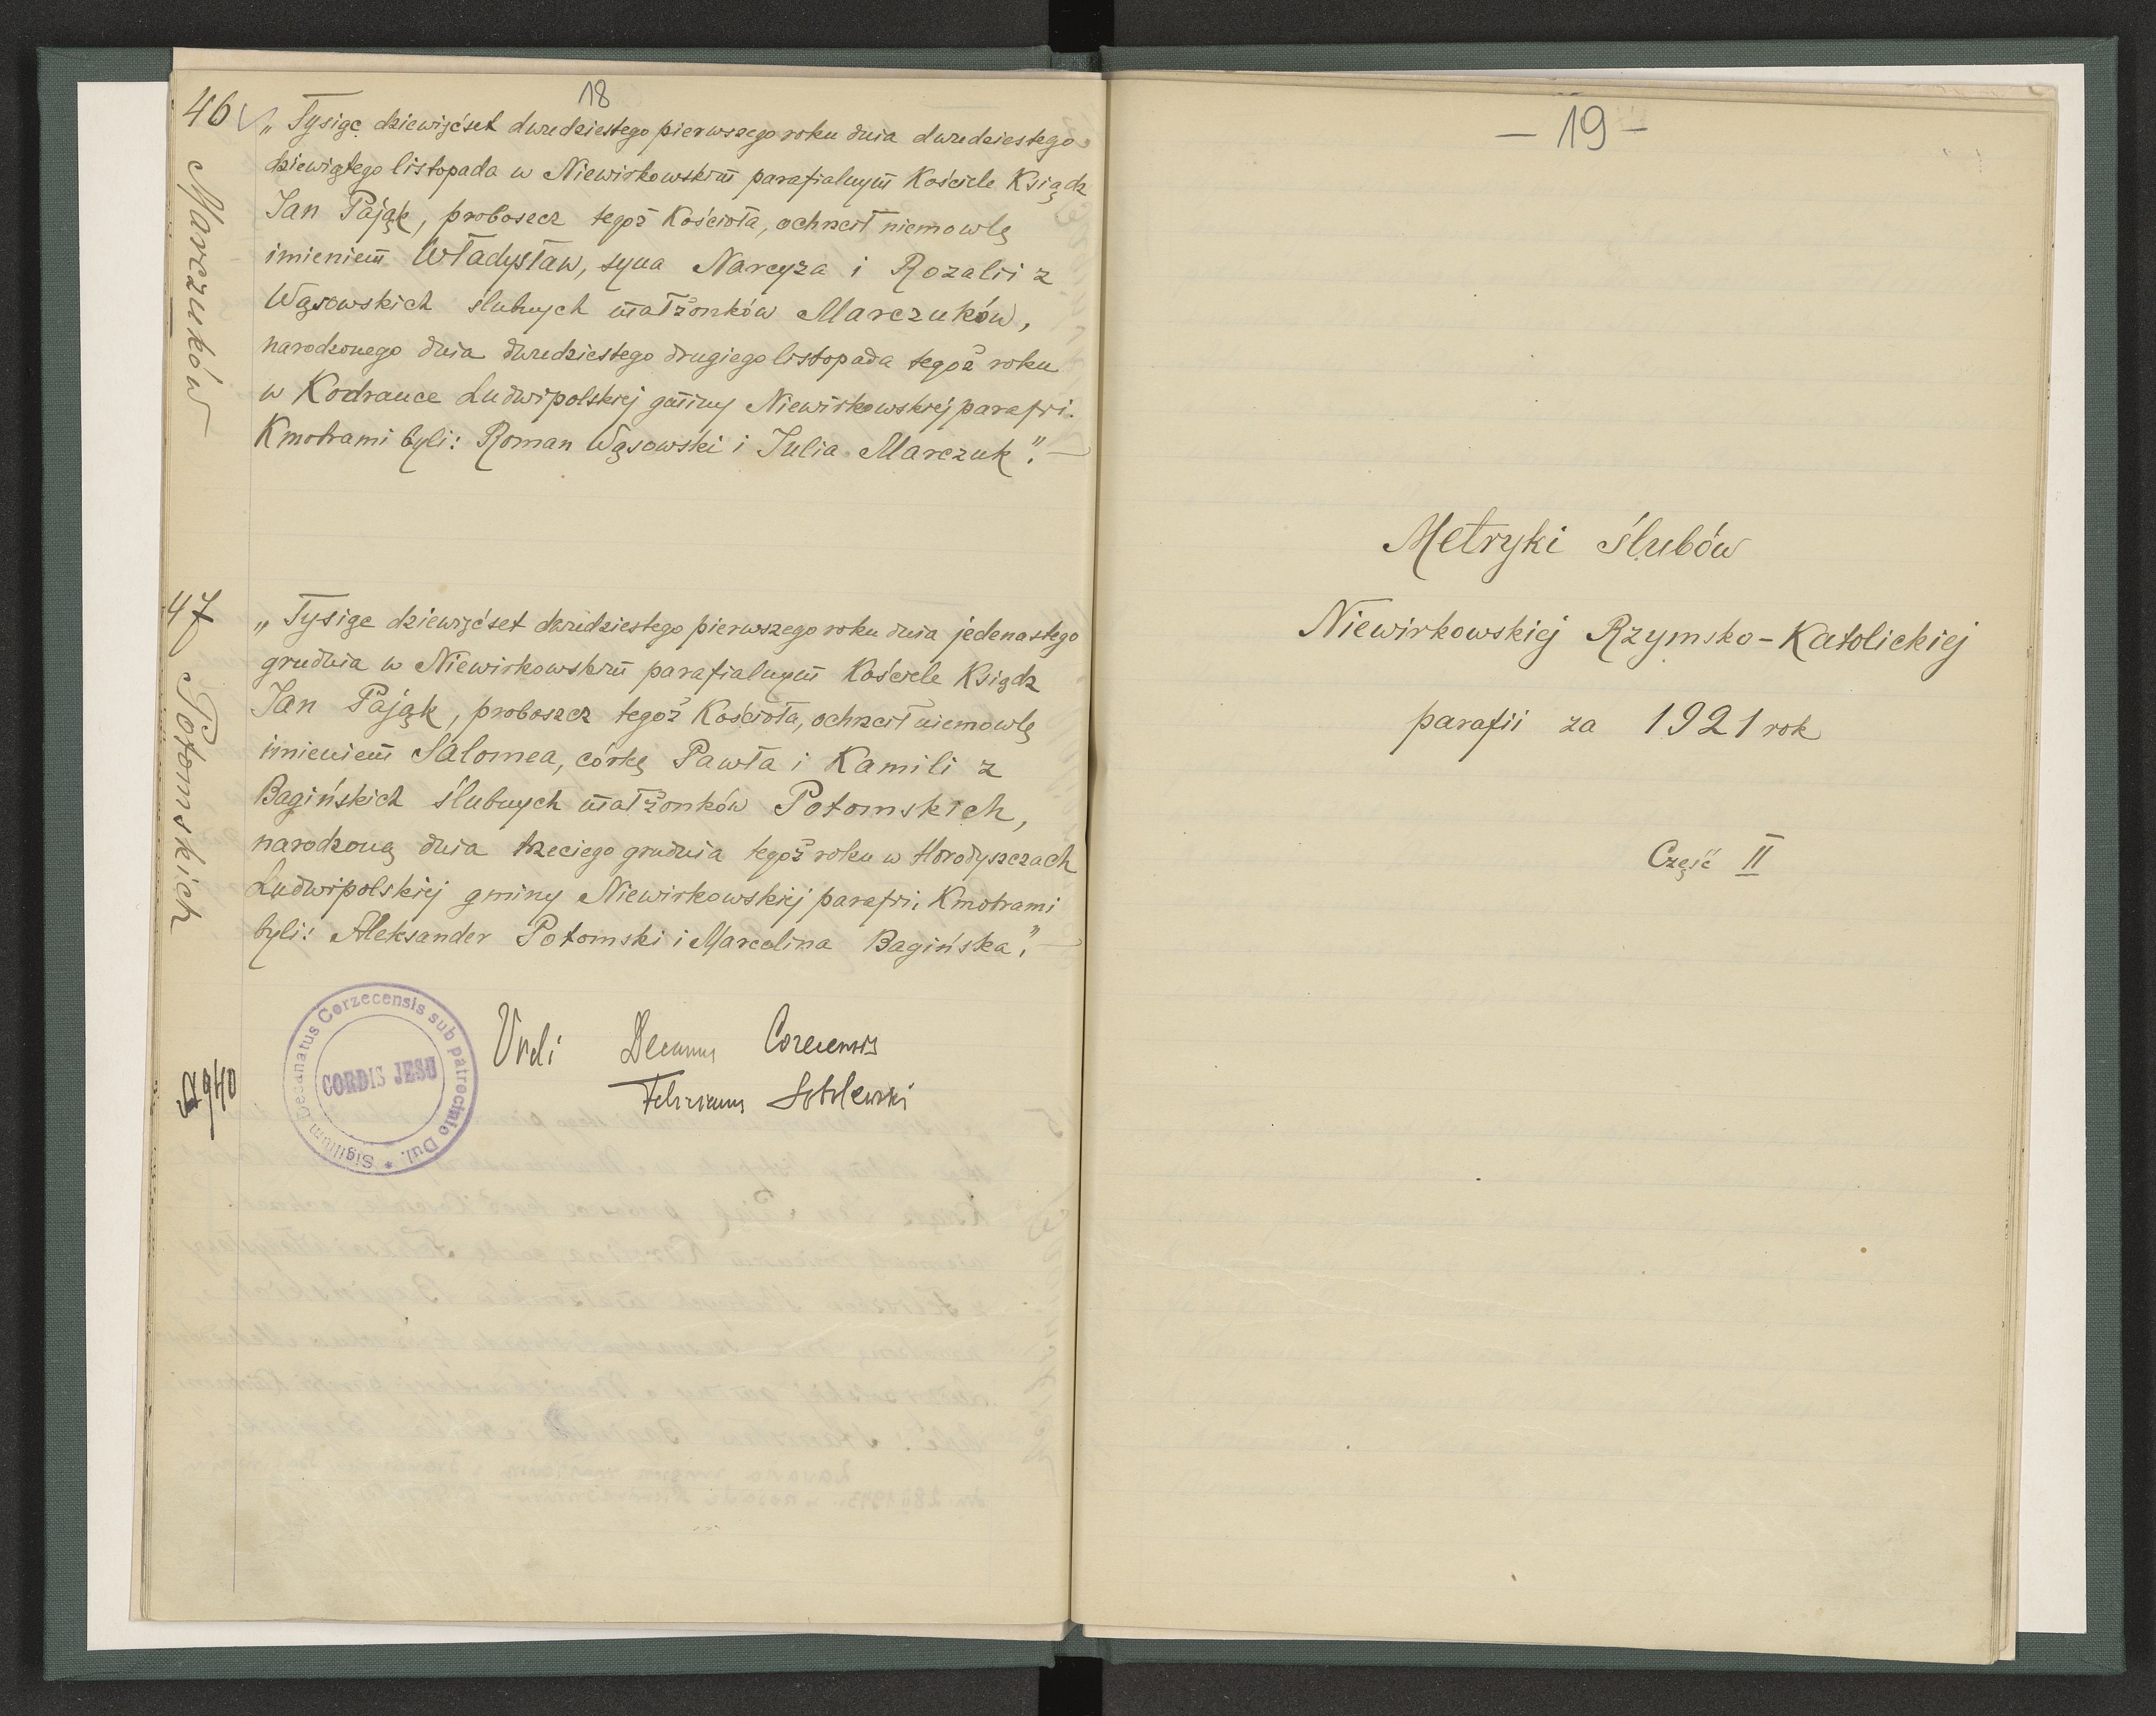 18
46
Marczuków
„Tysiąc dziewięćset dwudziestego pierwszego roku dnia dwudziestego
dziewiątego listopada w Niewirkowskim parafialnym Kościele Ksiądz
Jan Pająk, proboszcz tegoż Kościoła, ochrzcił niemowlę
imieniem Władysław, syna Narcyza i Rozalii z
Wąsowskich ślubnych małżonków Marczuków,
narodzonego dnia dwudziestego drugiego listopada tegoż roku
w Ludwipolskiej gminy Niewirkowskiej parafii.
Kmotrami byli: Roman Wąsowski i Julia Marczuk”. —
47
Potomskich
„Tysiąc dziewięćset dwudziestego pierwszego roku dnia jedenastego
grudnia w Niewirkowskim parafialnym Kościele Ksiądz
Jan Pająk, proboszcz tegoż Kościoła, ochrzcił niemowlę
imieniem Salomea, córkę Pawła i Kamili z
Bagińskich ślubnych małżonków Potomskich,
narodzoną dnia trzeciego grudnia tegoż roku w Horodyszczach
Ludwipolskiej gminy Niewirkowskiej parafii. Kmotrami
byli: Aleksander Potomski i Marcelina Bagińska”. —
Sigillum Decanatus Corzecensis sub patrocinio Dul. *
CORDIS JESU
Vidi Decanus Corecensis
Felicianus Sobolewski
— 19 —
Metryki Ślubów
Niewirkowskiej Rzymsko-Katolickiej
parafii za 1921 rok
Część II